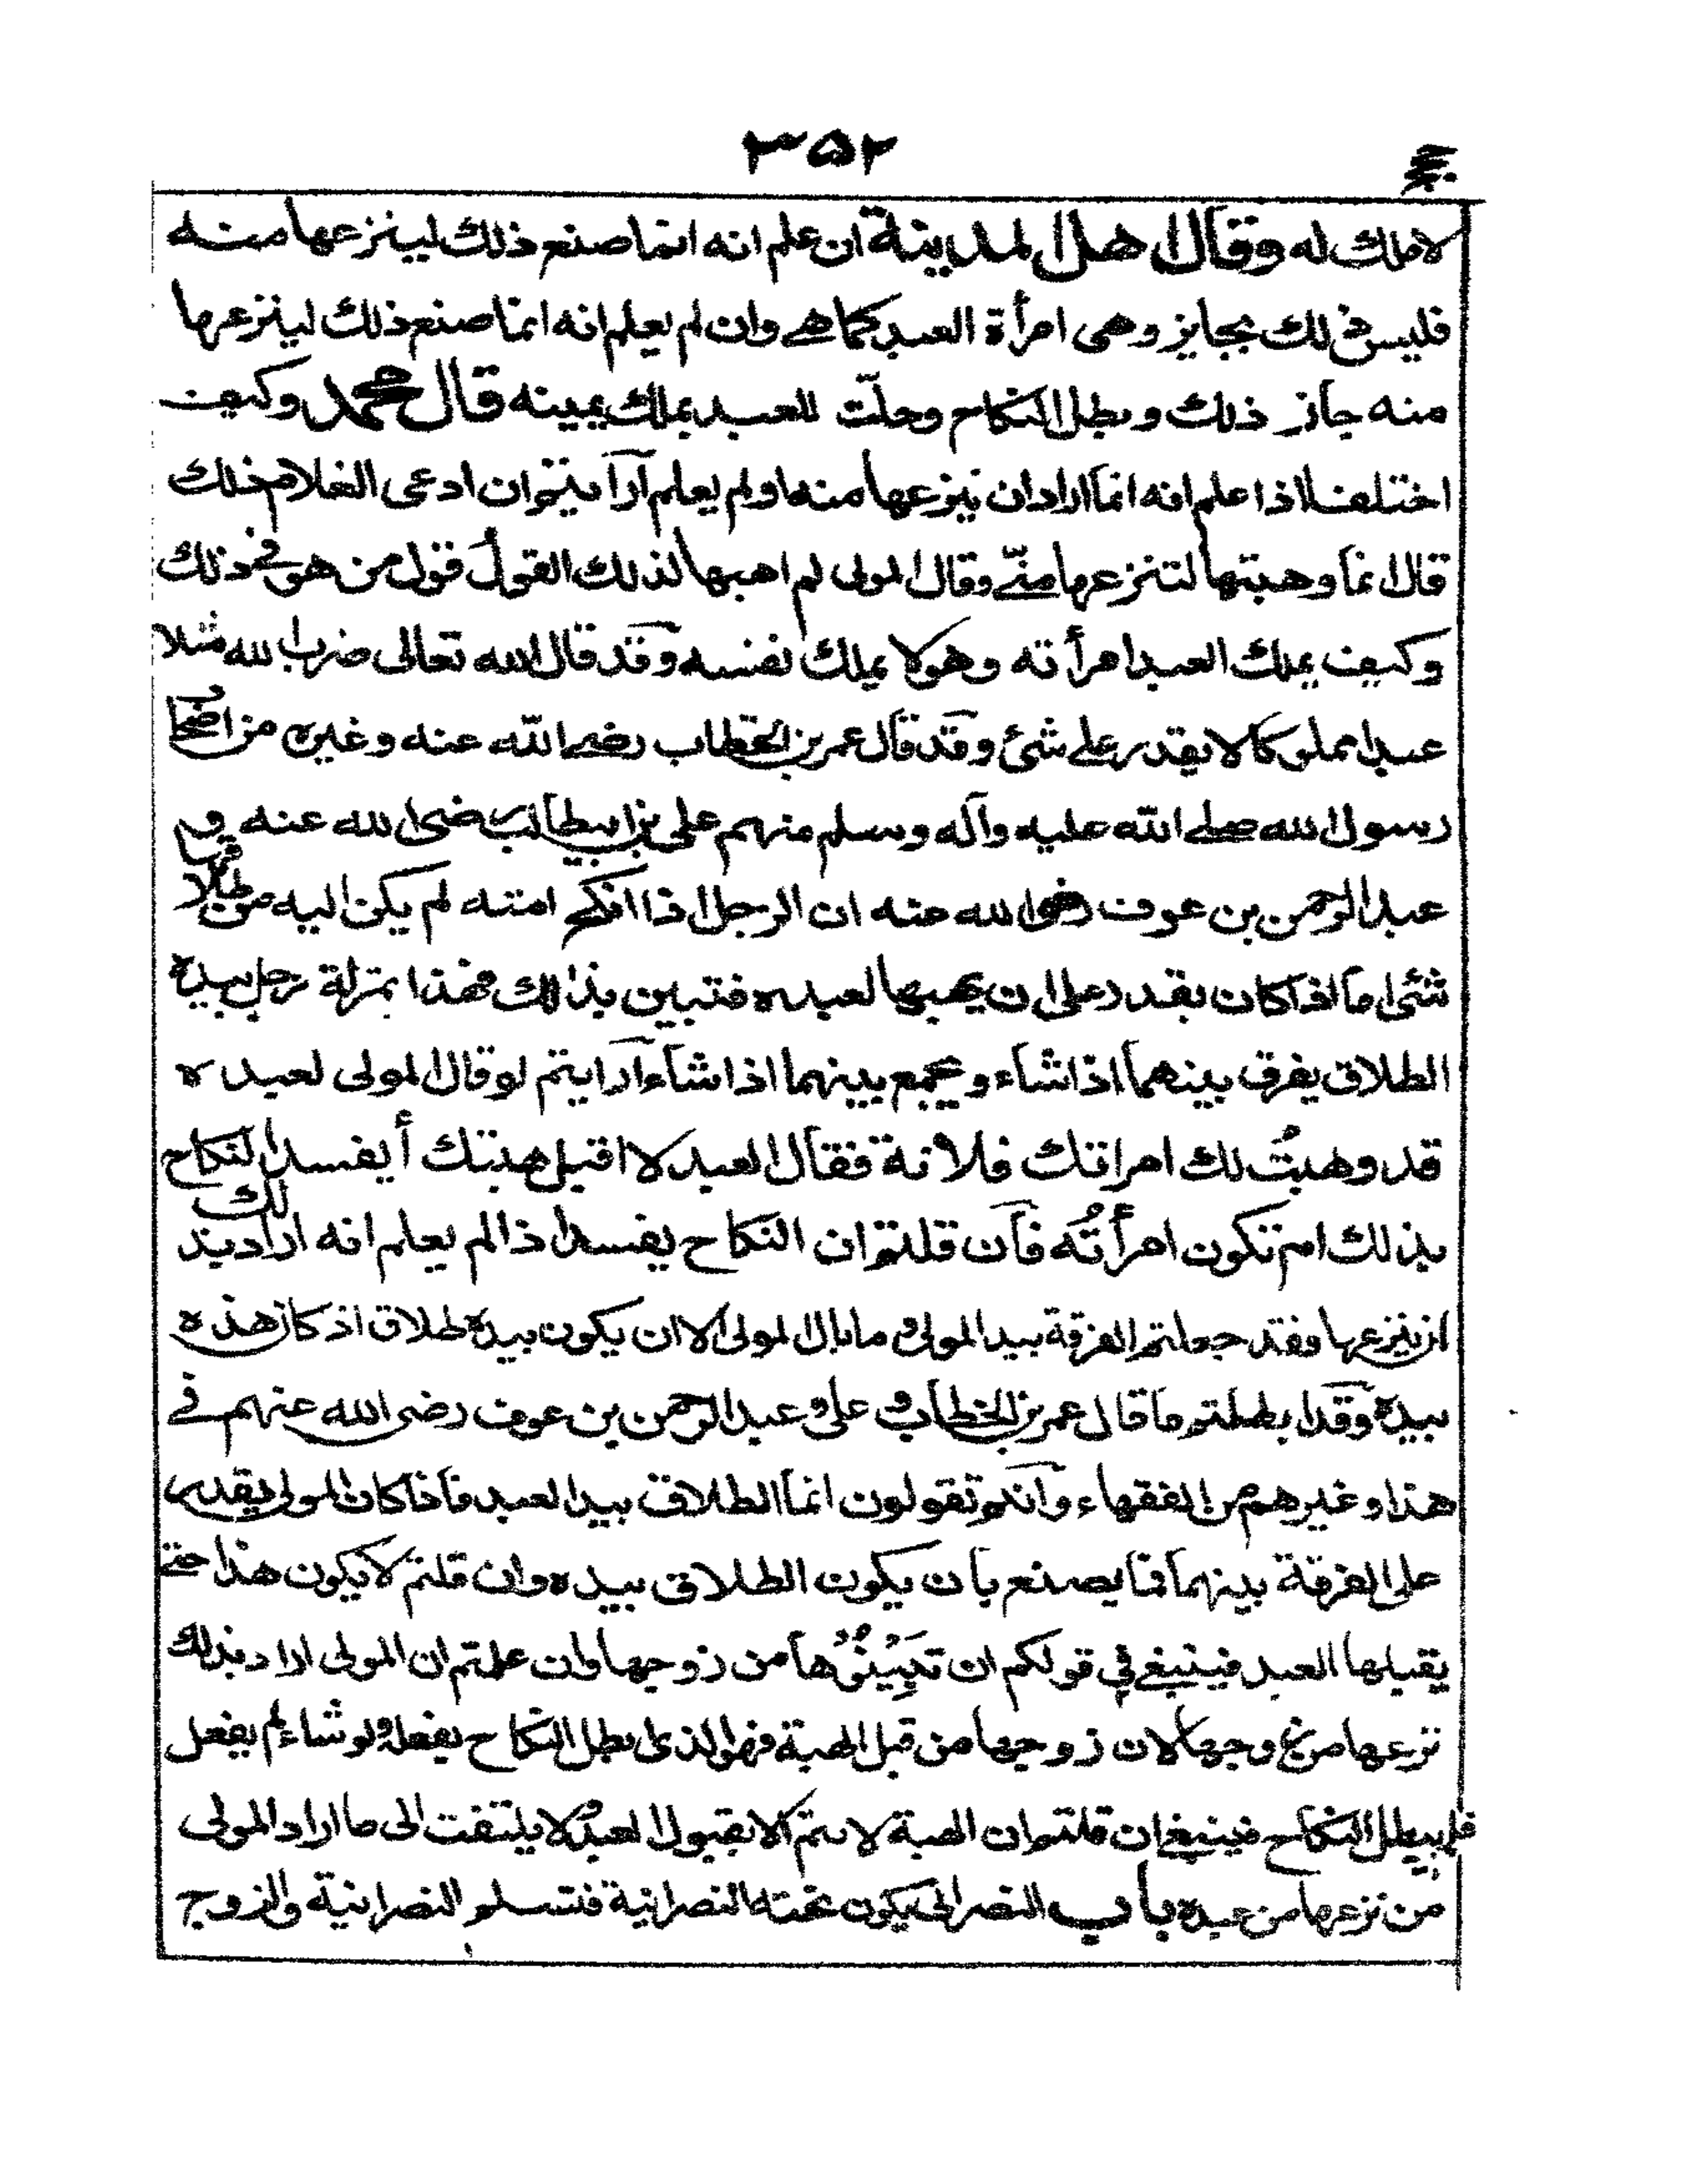 ٣٥٢
لا ملك له وقال اهل المدينة ان علم انه انما صنع ذلك لينزعها منه
فليس ذلك بجايز وهى امرأة العبد كما هي وان لم يعلم انه انما صنع ذلك لينزعها
منه جاز ذلك وبطل النكاح وحلّت للعبد بملك يمينه قال محمد وكيف
اختلف اذا علم انه انما اراد ان ينزعها منه او لم يعلم أرأيتم ان ادعى الغلام ذلك
قال انما وهبتها لتنزعها منّي وقال المولى لم اهبها لذلك القول قول من هو في ذلك
وكيف يملك العبد امرأته وهو لا يملك نفسه وقد قال الله تعالى ضرب الله مثلا
عبدا مملوكا لا يقدر على شئ وقد قال عمر بن الخطاب رضي الله عنه وغيره من اصحاب
رسول الله صلى الله عليه وآله وسلم منهم على بن ابيطالب رضى الله عنه و
عبد الرحمن بن عوف رضى الله عنه ان الرجل اذا انكح امته لم يكن اليه من طلاقها
شئ اما اذا كان يقدر على ان يهبها لعبده فتبين بذلك فهذا بمنزلة رجل بيده
الطلاق يفرق بينهما اذا شاء ويجمع بينهما اذا شاء أرايتم لو قال المولى لعبده
قد وهبتُ لك امراتك فلانة فقال العبد لا اقبل هبتك أيفسد النكاح
بذلك ام تكون امرأتُه فان قلتم ان النكاح يفسد اذا لم يعلم انه اراد بذلك
ان ينزعها فقد جعلتم الفرقة بيد المولى وما بال المولى الا ان يكون بيده طلاق اذ كان هذه
بيده وقد ابطلتم ما قال عمر بن الخطاب وعلى وعبد الرحمن بن عوف رضى الله عنهم في
هذا وغيرهم من الفقهاء وانتم تقولون انما الطلاق بيد العبد فاذا كان المولى يقدر
على الفرقة بينهما فما يصنع بان يكون الطلاق بيده وان قلتم لا يكون هذا حتى
يقبلها العبد فينبغي في قولكم ان تُبِيْنُوْها من زوجها وان علمتم ان المولى اراد بذلك
نزعها من زوجها لان زوجها من قبل الهبة فهو الذى بطل النكاح بفعله ولو شاء لم يفعل
فلم يبطل النكاح فينبغي ان قلتم ان الهبة لا تتم الا بقبول العبد لا يلتفت الى ما اراد المولى
من نزعها من عبده باب النصراني يكون تحته النصرانية فتسلم النصرانية والزوج